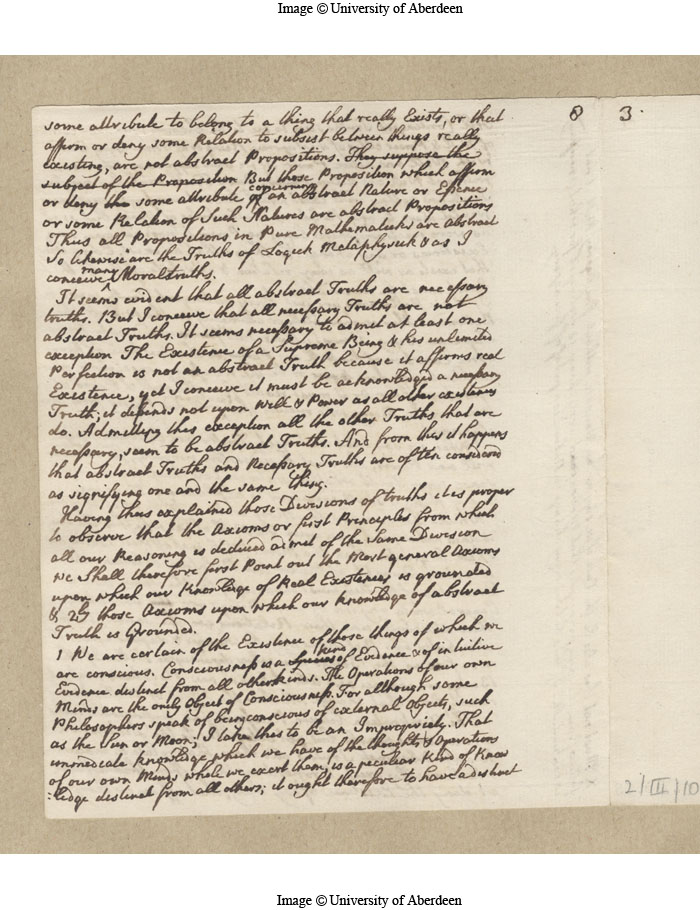 Image © University of Aberdeen
8
3.
some attribute to belong to a thing that really Exists, or that
affirm or deny some Relation to subsist between things really
existing, are not abstract Propositions. They suppose the
subject of the Proposition But those Proposition which affirm
or deny the some attribute of concerning an abstract Nature or Essence
or some Relation of Such Natures are abstract Propositions
Thus all Propositions in Pure Mathematicks are abstract
So likewise are the Truths of Logick Metaphysick & as I
conceive many Moral truths.
It seems evident that all abstract Truths are necessary
truths. But I conceive that all necessary Truths are not
abstract Truths. It seems necessary to admit at least one
exception The Existence of a Supreme Being & his unlimited
Perfection is not an abstract Truth because it affirms real
Existence, yet I conceive it must be acknowledged a necessary
Truth; it depends not upon Will & Power as all other existences
do. Admitting this exception all the other Truths that are
necessary, seem to be abstract Truths. And from this it happens
that abstract Truths and Necessary Truths are often considered
as signifying one and the same thing.
Having thus explained those Divisions of truths it is proper
to observe that the Axioms or first Principles from which
all our Reasoning is deduced admit of the Same Division
we Shall therefore first Point out the Most general Axioms
upon which our Knowledge of Real Existences is grounded
& 2ly those Axioms upon which our knowledge of abstract
Truth is Grounded.
1 We are certain of the Existence of those things of which we
are conscious. Consciousness is a Species kind of Evidence & of intuitive
Evidence distinct from all other kinds. The Operations of our own
Minds are the only Object of Consciousness. For although some
Philosophers speak of being conscious of external Objects, such
as the Sun or Moon; I take this to be an Impropriety. That
immediate knowledge which we have of the thoughts & Operations
of our own Minds while we exert them, is a peculiar Kind of Know
:ledge distinct from all others; it ought therefore to have a distinct
2/III/10
Image © University of Aberdeen